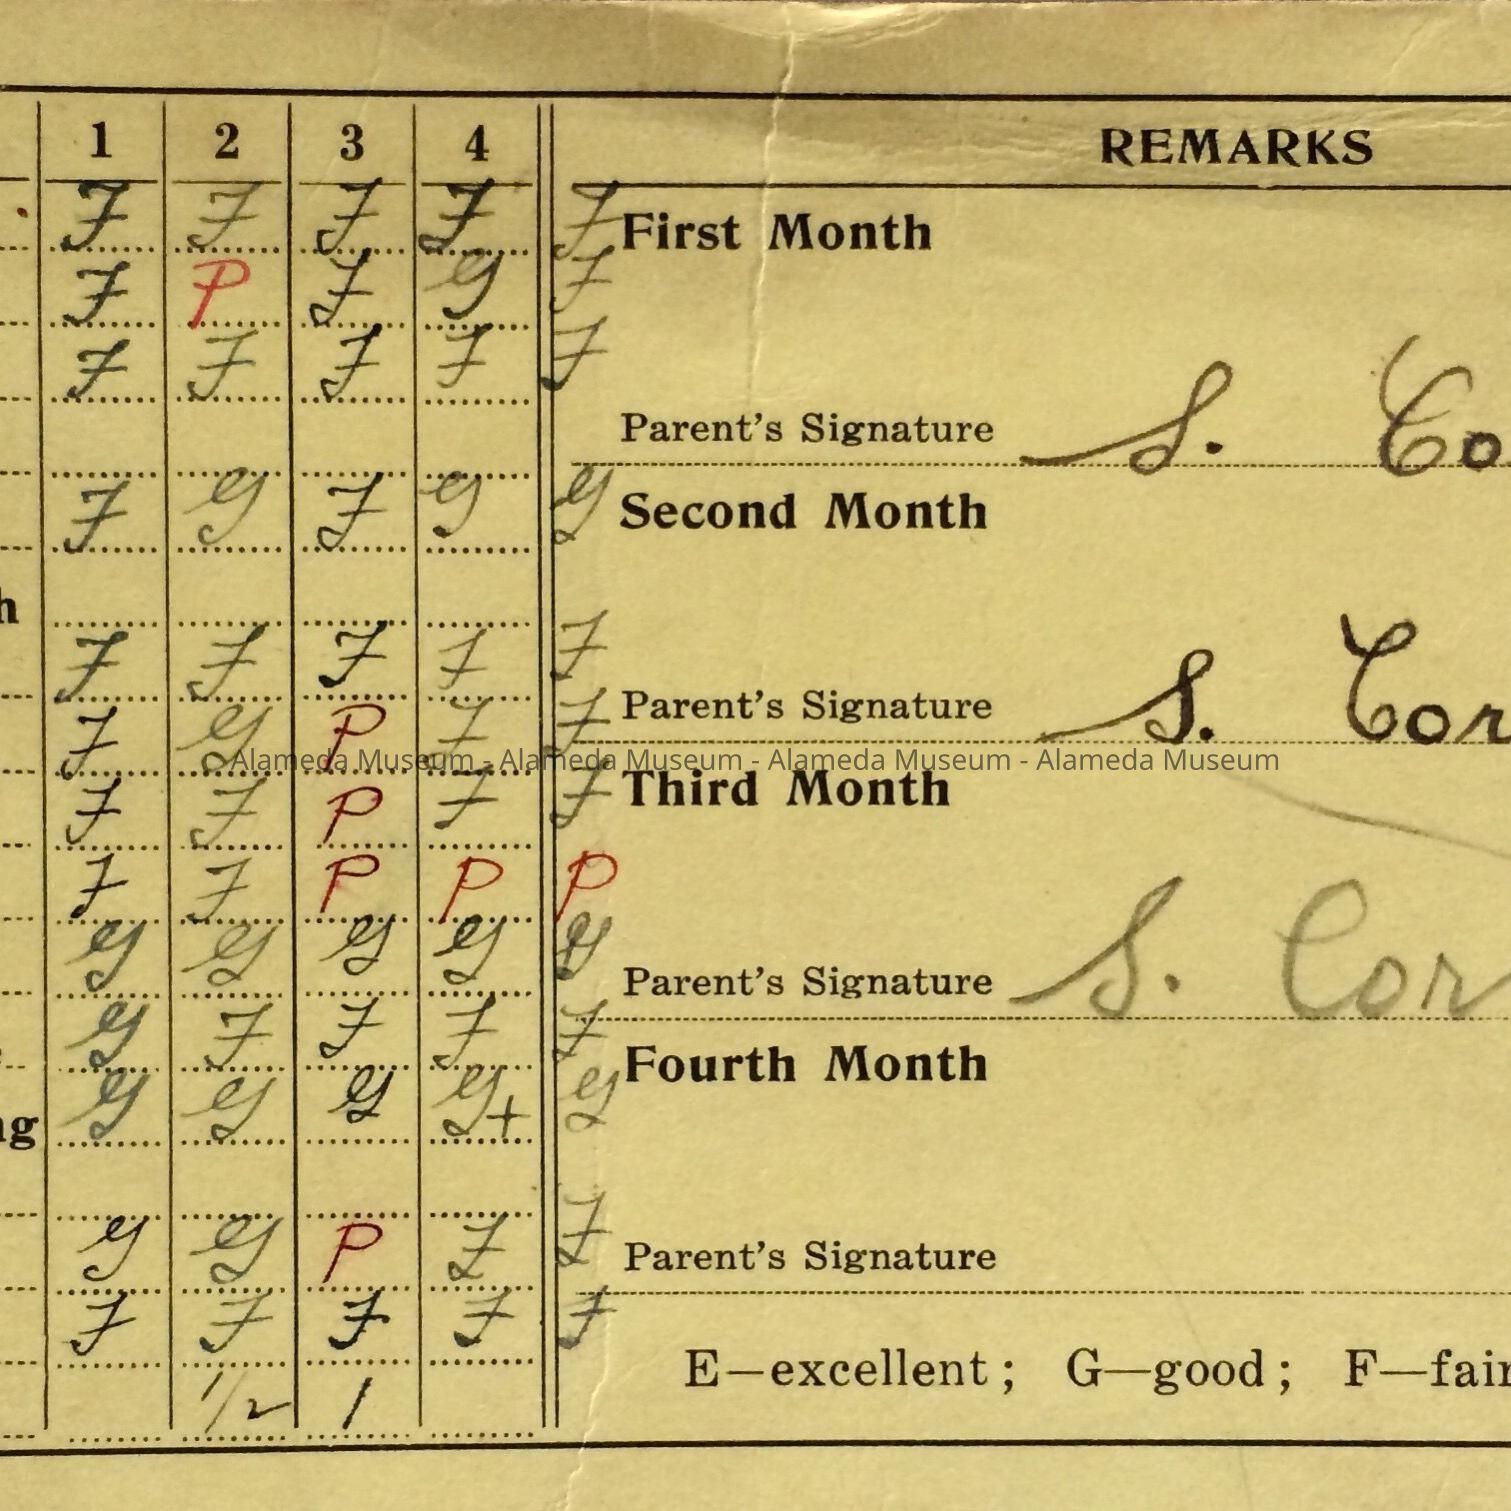 1 2 3 4 REMARKS
F F F F F First Month
F P F G F
F F F F F
Parent's Signature S. Co
F G F G G Second Month
h
F F F F F
F G P F F Parent's Signature S. Cor
Alameda Museum - Alameda Museum - Alameda Museum - Alameda Museum
F F P F F Third Month
F F P P P
G G G G G
Parent's Signature S. Cor
G F F F F
Fourth Month
ng G G G G+ G
G G P F F Parent's Signature
F F F F F
E—excellent; G—good; F—fair
1/2 1